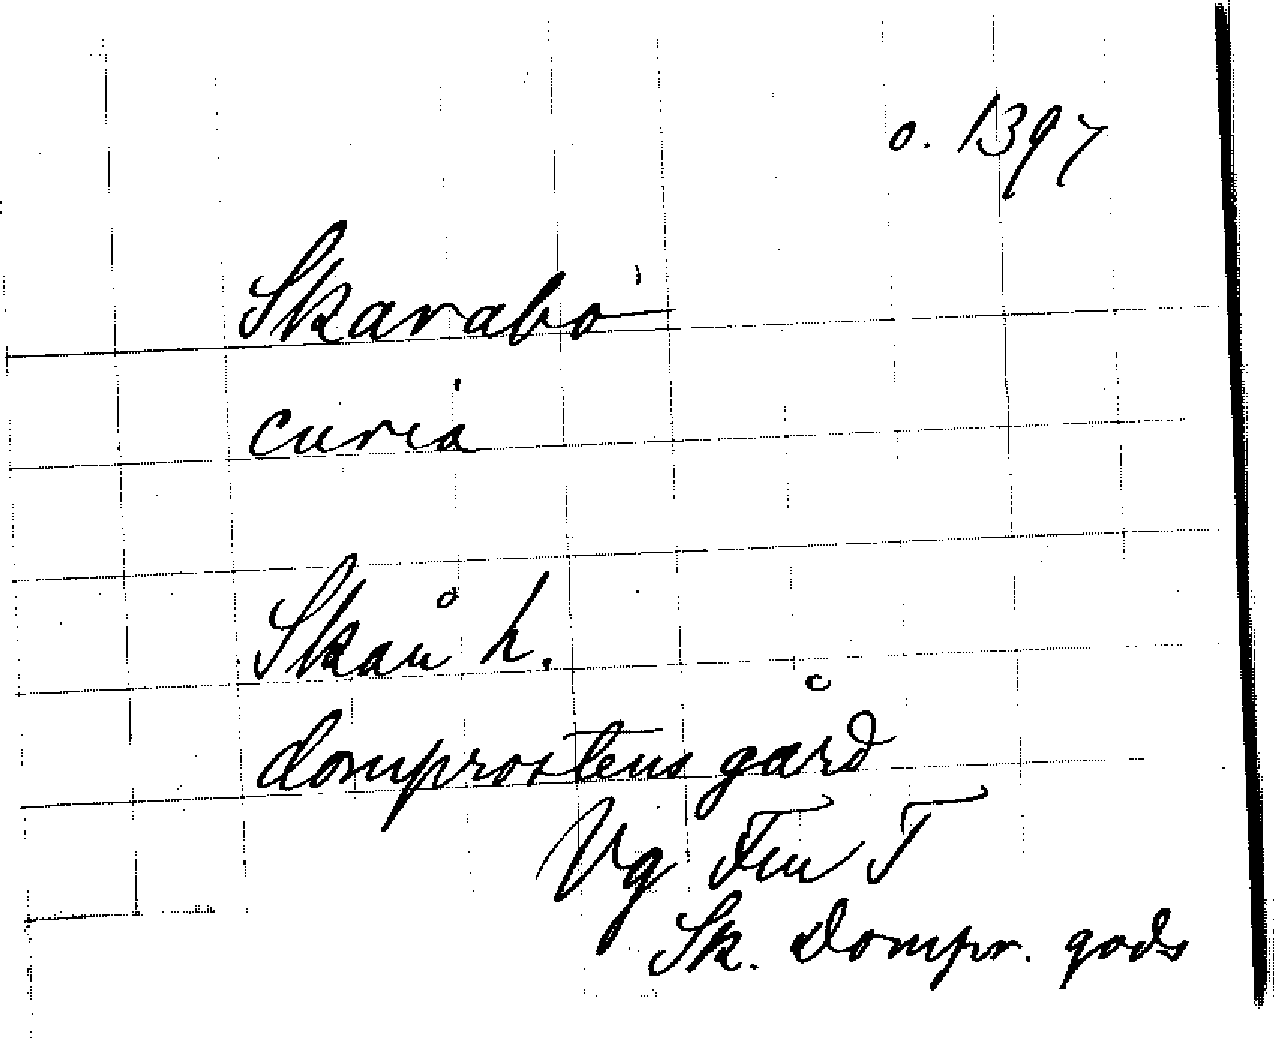 o. 1397
Skarabo
curia
Skån h.
domprostens gård
Vg Fem T
Sk. Dompr. gods